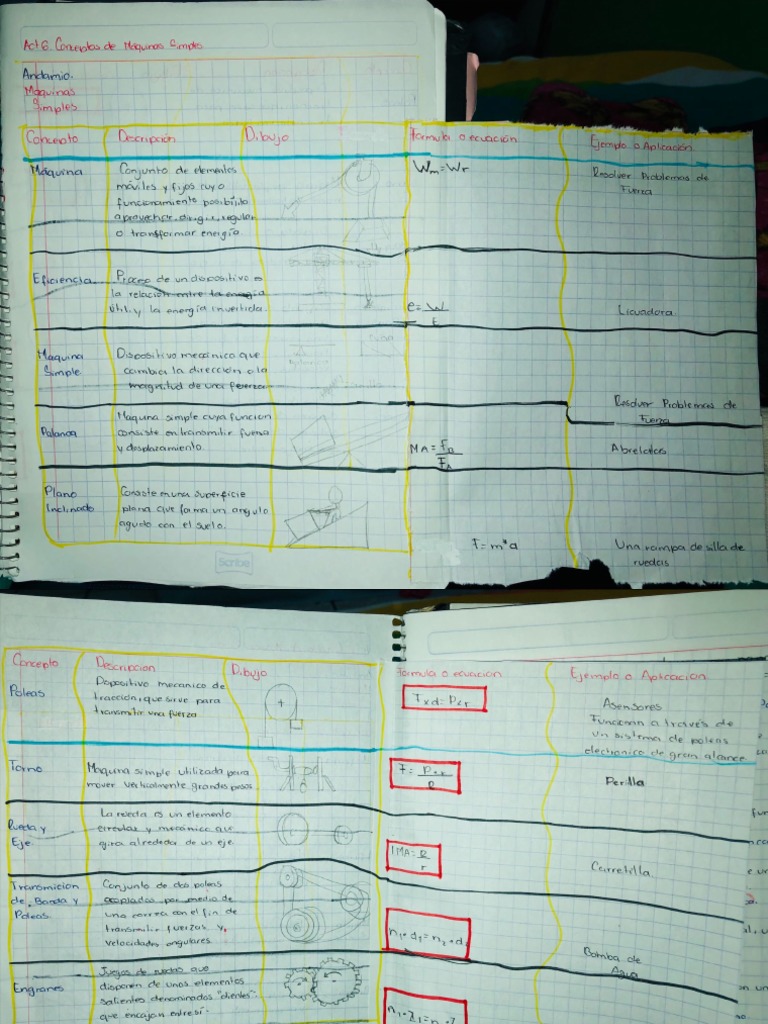 Act 6. Conceptos de Maquinas Simples
Andamio.
Maquinas
Simples
Concepto Descripción Dibujo Formula o ecuación Ejemplo o Aplicación
Máquina
Conjunto de elementos
móviles y fijos cuyo
funcionamiento posibilita
aprovechar, dirigir, regular
o transformar energía
Wm = Wr
Resolver Problemas de
Fuerza
Eficiencia
Proceso de un dispositivo es
la relación entre la energía
útil y la energía invertida
e = W
E
Licuadora
Maquina
Simple
Dispositivo mecánico que
cambia la dirección o la
magnitud de una fuerza
Resolver Problemas de
Fuerza
Palanca
Maquina simple cuya funcion
consiste en transmitir fuerza
y desplazamiento.
MA = FR
FA
Abrelatas
Plano
Inclinado
Consiste en una superficie
plana que forma un angulo
agudo con el suelo.
F = m*a
Una rampa de silla de
ruedas
Scribe
Concepto Descripcion Dibujo Formula o ecuacion Ejemplo o Aplicacion
Poleas
Dispositivo mecanico de
tracción, que sirve para
transmitir una fuerza
Asensores
Funcionan a través de
un sistema de poleas
electronico de gran alcance
Torno
Maquina simple utilizada para
mover verticalmente grandes pesos
Perilla
Rueda y
Eje
La rueda es un elemento
circular y mecánico que
gira alrededor de un eje
IMA = R
r
Carretilla
Transmicion
de Banda y
Poleas
Conjunto de dos poleas
acopladas por medio de
una correa con el fin de
transmitir fuerzas y
velocidades angulares
n1 • d1 = n2 • d2
Bomba de
Agua
Engranes
Juegos de ruedas que
disponen de unos elementos
salientes denominados "dientes"
que encajan entre sí.